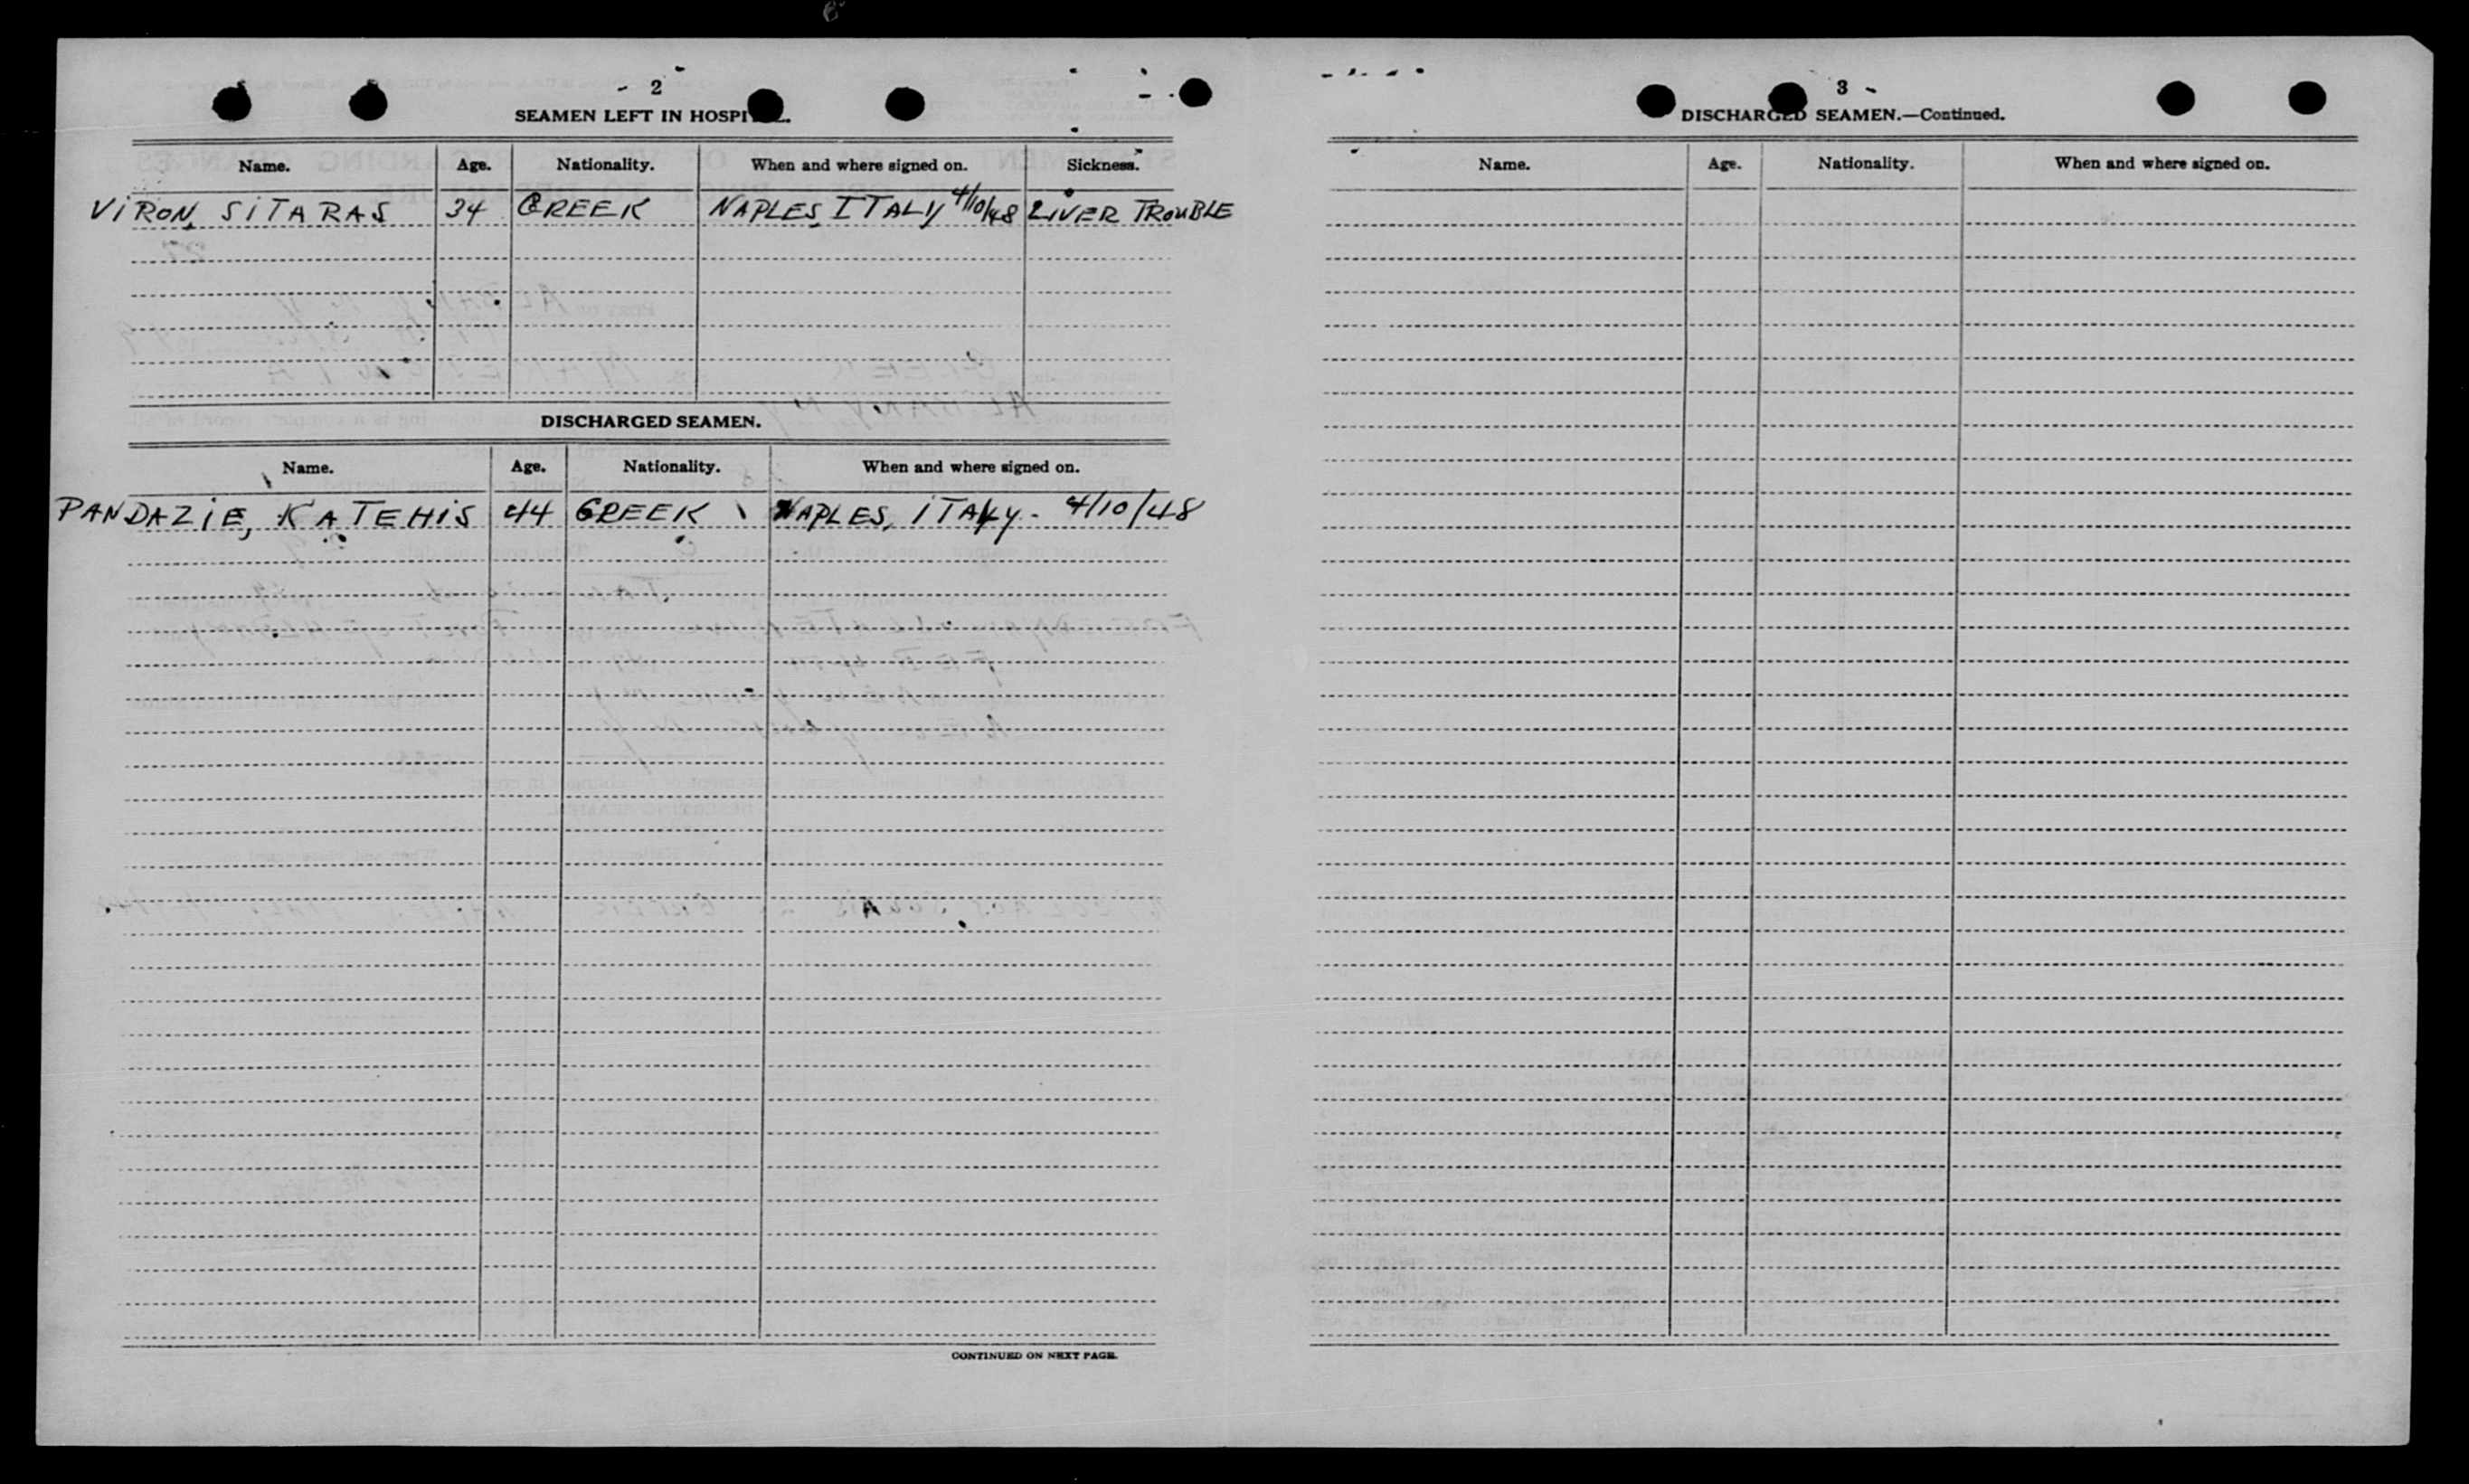 2
SEAMEN LEFT IN HOSPITAL.
Name. Age. Nationality. When and where signed on. Sickness.
VIRON, SITARAS 34 GREEK NAPLES, ITALY 4/10/48 LIVER TROUBLE
DISCHARGED SEAMEN.
Name. Age. Nationality. When and where signed on.
PANDAZIE, KATEHIS 44 GREEK NAPLES, ITALY - 4/10/48
CONTINUED ON NEXT PAGE.
3
DISCHARGED SEAMEN.—Continued.
Name. Age. Nationality. When and where signed on.